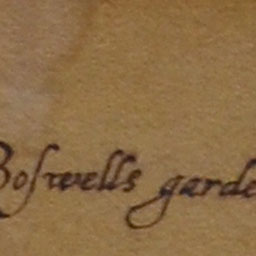 Boſwells garde